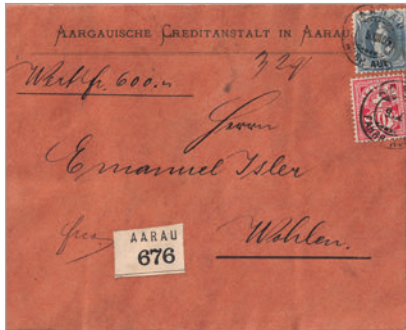 AARGAUISCHE CREDITANSTALT IN AARAU
Wert fr. 600.–
32 gr
Herrn
Emanuel Isler
Wohlen.
AARAU
676